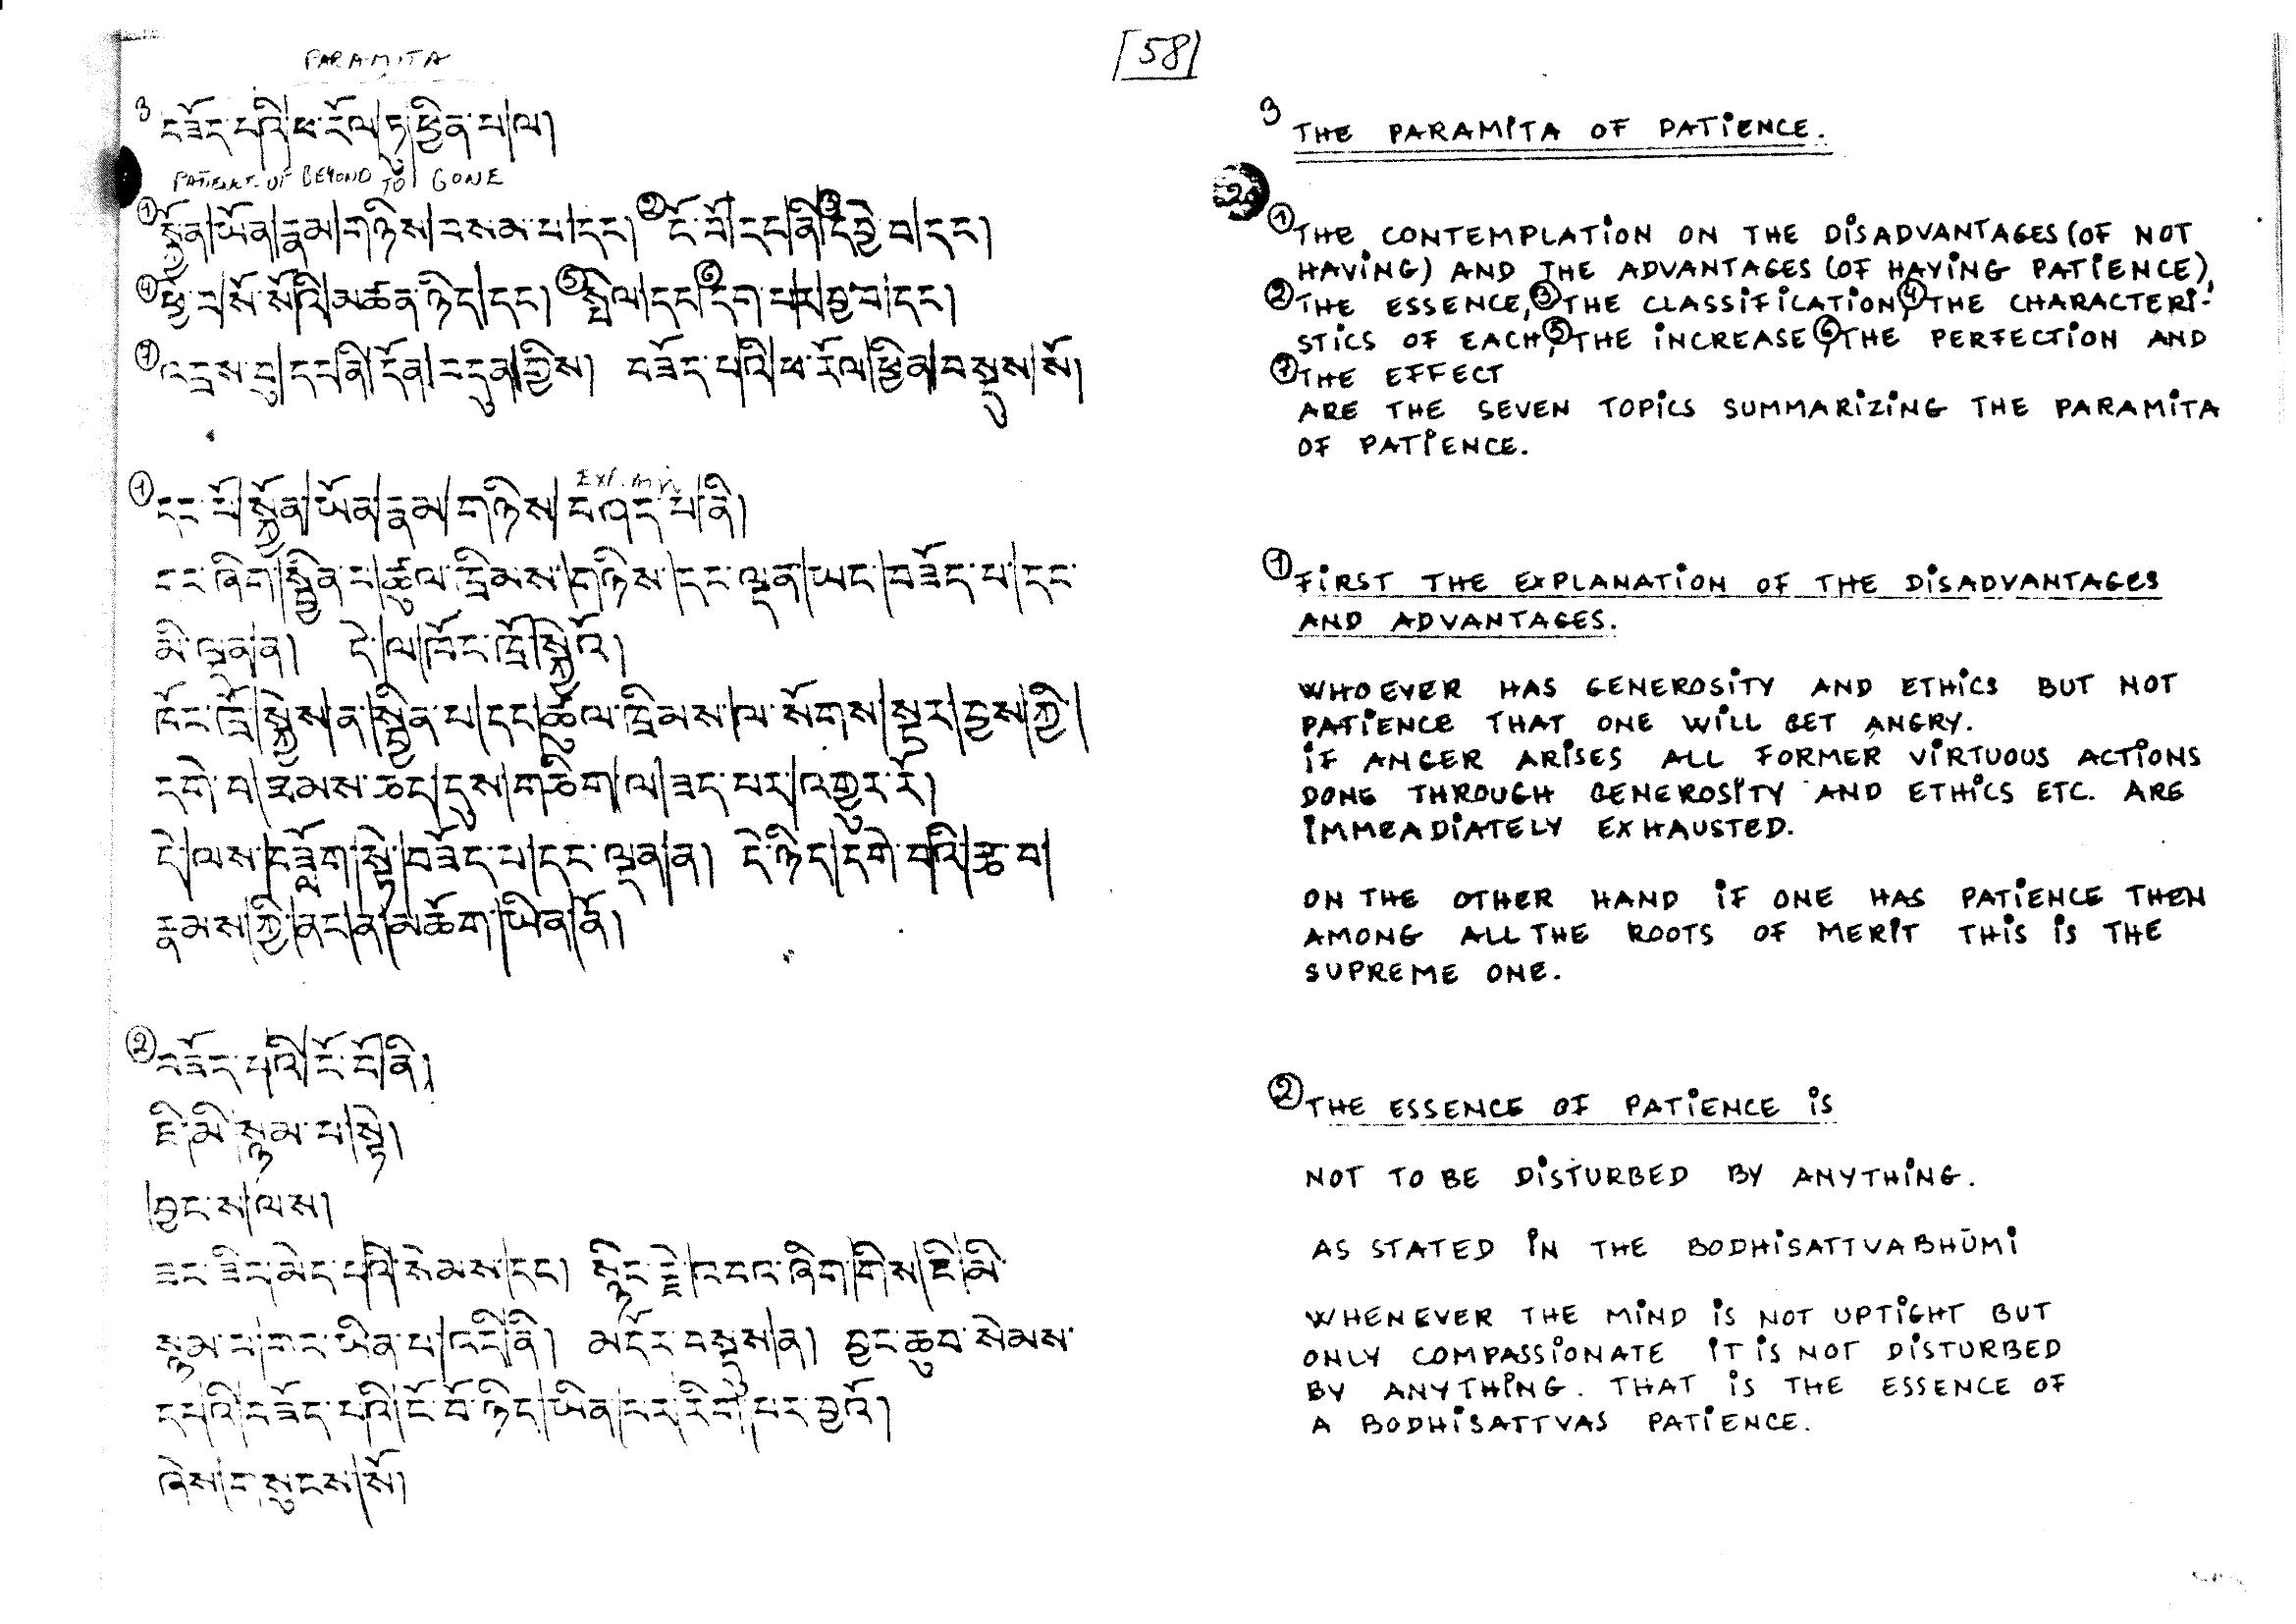 [58]
PARAMITA
3 བཟོད་པའི|ཕ་རོལ|ཏུ|ཕྱིན་པ|ལ།
PATIENC. OF BEYOND TO GONE
① སྐྱོན|ཡོན|རྣམ|གཉིས|བསམ་པ|དང། ② ངོ་བོ|དང|ནི|③དབྱེ་བ|དང།
④ ཕྱེ་བ|སོ་སོའི|མཚན་ཉིད|དང། ⑤ སྤེལ|དང|⑥དག་པར|བྱ་བ|དང།
⑦ འབྲས་བུ|དང|ནི|དོན|བདུན|གྱིས། བཟོད་པའི|ཕ་རོལ|ཕྱིན|བསྡུས|སོ།
① དང་པོ|སྐྱོན|ཡོན|རྣམ|གཉིས|བཤད་པ|ནི།
གང་ཞིག|སྦྱིན་པ|ཚུལ་ཁྲིམས་|གཉིས་|དང་ལྡན|ཡང|བཟོད་པ|དང་
མི་ལྡན|ན། དེ|ལ|ཁོང་ཁྲོ|སྐྱེའོ།
ཁོང་ཁྲོ|སྐྱེས|ན|སྦྱིན་པ|དང|ཚུལ་ཁྲིམས|ལ་སོགས|སྔར|བྱས|ཀྱི|
དགེ་བ|ཐམས་ཅད|དུས|གཅིག|ལ|ཟད་པར|འགྱུར་རོ།
དེ|ལས་|བཟློག་|སྟེ|བཟོད་པ|དང་ལྡན|ན། དེ་ཉིད|དགེ་བའི|རྩ་བ|
རྣམས|ཀྱི|ནང|ན|མཆོག་|ཡིན|ནོ།
② བཟོད་པའི|ངོ་བོ|ནི།
ཇི་མི་སྙམ་པ|སྟེ།
|བྱང་ས|ལས།
ཟང་ཟིང་མེད་པའི|སེམས|དང། སྙིང་རྗེ|འབའ་ཞིག|གིས|ཇི་མི་
སྙམ་པ|གང་ཡིན་པ|འདི|ནི། མདོར་བསྡུས|ན། བྱང་ཆུབ་སེམས་
དཔའི|བཟོད་པའི|ངོ་བོ་ཉིད|ཡིན|པར|རིག་པར་བྱའོ།
ཞེས|གསུངས|སོ།
3 THE PARAMITA OF PATIENCE.
① THE CONTEMPLATION ON THE DISADVANTAGES (OF NOT
HAVING) AND THE ADVANTAGES (OF HAVING PATIENCE),
② THE ESSENCE, ③ THE CLASSIFICATION, ④ THE CHARACTERI-
STICS OF EACH, ⑤ THE INCREASE ⑥, THE PERFECTION AND
⑦ THE EFFECT
ARE THE SEVEN TOPICS SUMMARIZING THE PARAMITA
OF PATIENCE.
① FIRST THE EXPLANATION OF THE DISADVANTAGES
AND ADVANTAGES.
WHOEVER HAS GENEROSITY AND ETHICS BUT NOT
PATIENCE THAT ONE WILL GET ANGRY.
IF ANGER ARISES ALL FORMER VIRTUOUS ACTIONS
DONE THROUGH GENEROSITY AND ETHICS ETC. ARE
IMMEADIATELY EXHAUSTED.
ON THE OTHER HAND IF ONE HAS PATIENCE THEN
AMONG ALL THE ROOTS OF MERIT THIS IS THE
SUPREME ONE.
② THE ESSENCE OF PATIENCE IS
NOT TO BE DISTURBED BY ANYTHING.
AS STATED IN THE BODHISATTVABHŪMI
WHENEVER THE MIND IS NOT UPTIGHT BUT
ONLY COMPASSIONATE IT IS NOT DISTURBED
BY ANYTHING. THAT IS THE ESSENCE OF
A BODHISATTVAS PATIENCE.